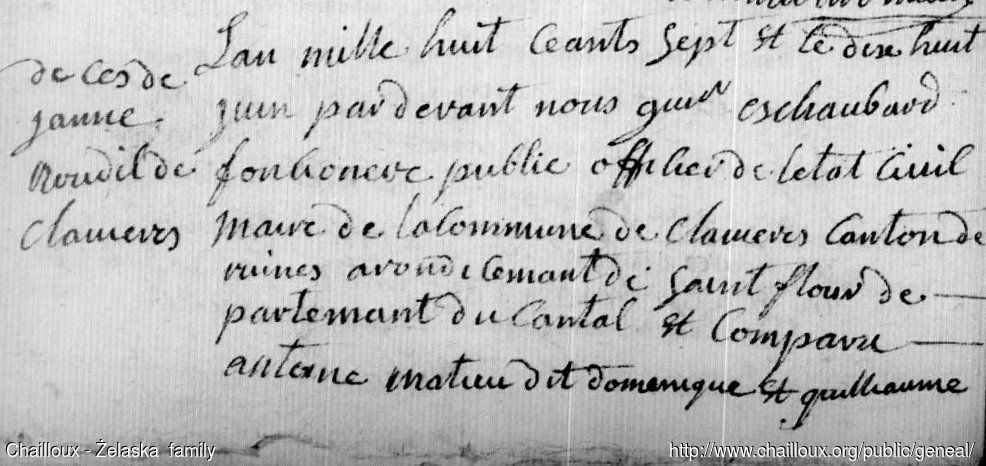 de ces de
janne
Roudil de
Clavieres
Lan mille huit Ceants Sept et le dixe huit
juin par devant nous guen eschaubard
fonhonere public offihier de letat Civil
maire de la Commune de Clavieres Canton de
ruines arondicemant de Saint flour de
partemant du Cantal et Comparu
antoine matieu dit domenique et guilliaume
Chailloux - Żelaska family
http://www.chailloux.org/public/geneal/